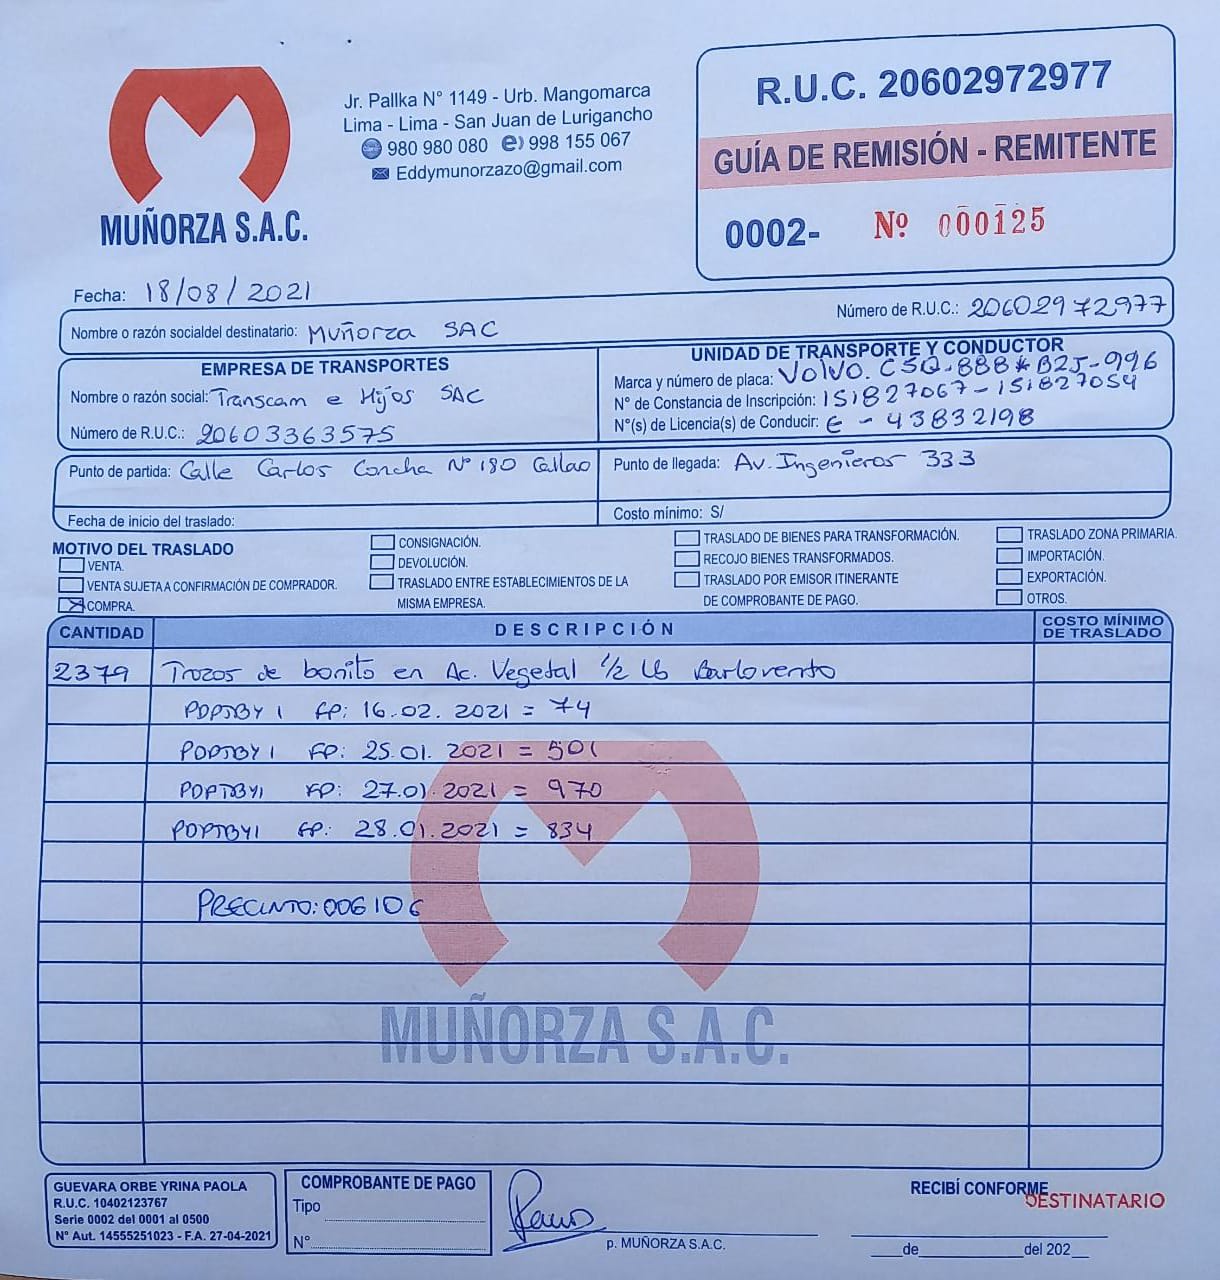 MUÑORZA S.A.C.
Jr. Pallka N° 1149 - Urb. Mangomarca
Lima - Lima - San Juan de Lurigancho
980 980 080 e) 998 155 067
Eddymunorzazo@gmail.com
R.U.C. 20602972977
GUÍA DE REMISIÓN - REMITENTE
0002- Nº 000125
Fecha: 18/08/2021
Nombre o razón socialdel destinatario: Muñorza SAC
Número de R.U.C.: 20602972977
EMPRESA DE TRANSPORTES
Nombre o razón social: Transcam e Hijos SAC
Número de R.U.C.: 20603363575
UNIDAD DE TRANSPORTE Y CONDUCTOR
Marca y número de placa: Volvo. C5Q-888*B2J-996
N° de Constancia de Inscripción: 151827067-151827054
N°(s) de Licencia(s) de Conducir: E-43832198
Punto de partida: Calle Carlos Concha N° 180 Callao
Punto de llegada: Av. Ingenieros 333
Fecha de inicio del traslado:
Costo mínimo: S/
MOTIVO DEL TRASLADO
VENTA.
VENTA SUJETA A CONFIRMACIÓN DE COMPRADOR.
X COMPRA.
CONSIGNACIÓN.
DEVOLUCIÓN.
TRASLADO ENTRE ESTABLECIMIENTOS DE LA
MISMA EMPRESA.
TRASLADO DE BIENES PARA TRANSFORMACIÓN.
RECOJO BIENES TRANSFORMADOS.
TRASLADO POR EMISOR ITINERANTE
DE COMPROBANTE DE PAGO.
TRASLADO ZONA PRIMARIA.
IMPORTACIÓN.
EXPORTACIÓN.
OTROS.
CANTIDAD DESCRIPCIÓN COSTO MÍNIMO
DE TRASLADO
2379 Trozos de bonito en Ac. Vegetal 1/2 Lb Barlovento
FP: 16.02.2021 = 74
FP: 25.01.2021 = 501
FP: 27.01.2021 = 970
FP: 28.01.2021 = 834
PRECINTO: 006106
MUÑORZA S.A.C.
GUEVARA ORBE YRINA PAOLA
R.U.C. 10402123767
Serie 0002 del 0001 al 0500
N° Aut. 14555251023 - F.A. 27-04-2021
COMPROBANTE DE PAGO
Tipo
N°
p. MUÑORZA S.A.C.
RECIBÍ CONFORME
DESTINATARIO
de del 202